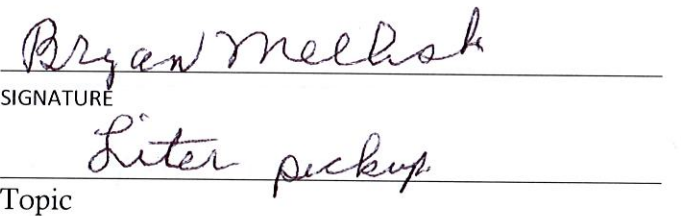 Bryan Mellish
SIGNATURE
Liter pickup
Topic